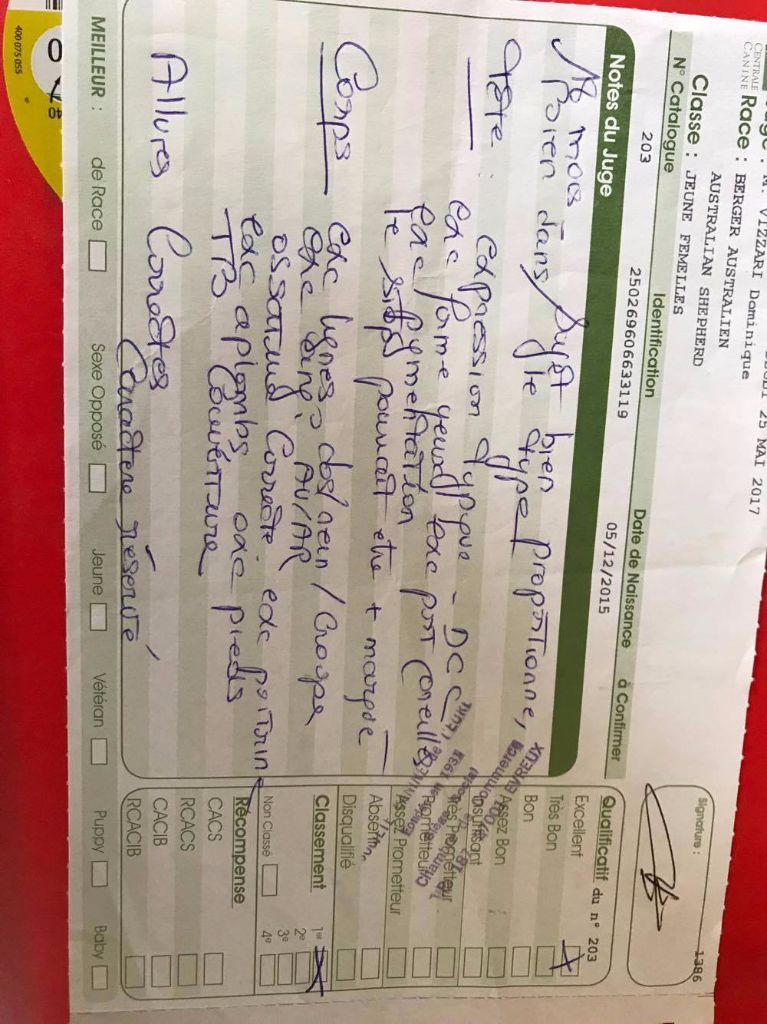 JEUDI 25 MAI 2017
M. VIZZARI Dominique
CENTRALE
CANINE
Race : BERGER AUSTRALIEN
AUSTRALIAN SHEPHERD
Classe : JEUNE FEMELLES
N° Catalogue Identification Date de Naissance à Confirmer
203 250269606633119 05/12/2015
Signature :
1386
Notes du Juge
18 mois - Sujet bien proportionné,
Bien dans le type
Tête : expression typique - DCC
exc forme yeux, exc port oreilles
exc pigmentation
le stop pourrait être + marqué
Corps exc lignes dos / rein / Croupe
exc ang. AV/AR
ossature Correcte. exc poitrine
exc aplombs exc pieds
TB Couverture
Allures Correctes
Caractère réservé
Qualificatif du n° 203
Excellent
Très Bon
Bon
Assez Bon
Insuffisant
Très Prometteur
Prometteur
Assez Prometteur
Absent
Disqualifié
EVREUX
Classement 1er
2e
Non Classé 3e
4e
Récompense
CACS
RCACS
CACIB
RCACIB
MEILLEUR : de Race Sexe Opposé Jeune Vétéran Puppy Baby
400 075 055
0